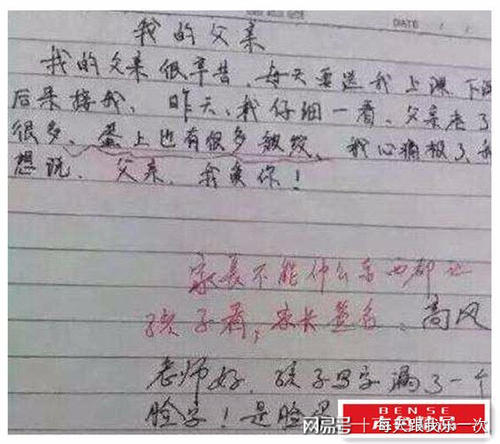 DATE
我的父亲
我的父亲很辛苦，每天要送我上课，下课
后来接我，昨天，我仔细一看，父亲老了
很多，蛋上也有很多皱纹，我心痛极了，我
想说，父亲，我爱你！
家长不能什么东西都让
孩子看，家长签名：高风
老师好，孩子写字漏了一个
脸字！是脸
BENSE
网易号 | 每天跟我乐一次